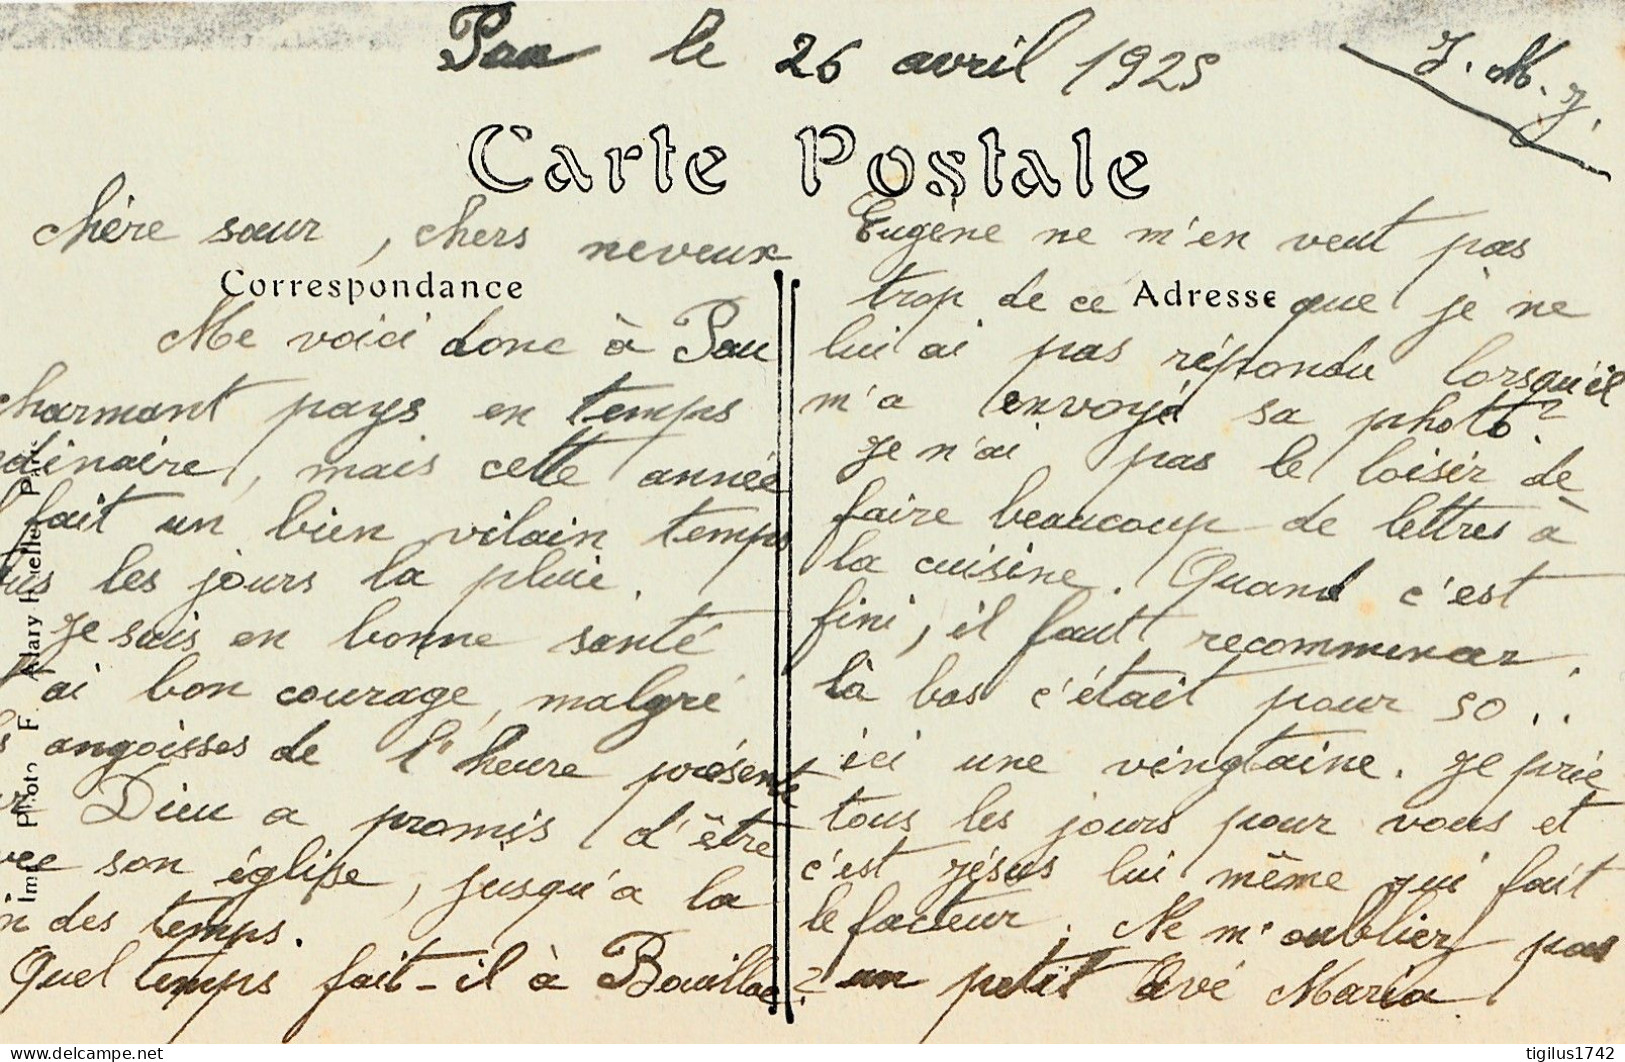 Pau le 26 avril 1925
J. M. J.
Carte Postale
chère sœur, chers neveux
Correspondance
Me voici donc à Pau
charmant pays en temps
dinaire, mais cette année
fait un bien vilain temps
us les jours la pluie.
Je suis en bonne santé
t ai bon courage, malgré
s angoisses de l'heure présente
Dieu a promis d'être
vec son église, jusqu'à la
n des temps.
Quel temps fait-il à Bouillac?
Eugène ne m'en veut pas
trop de ce que je ne
Adresse
lui ai pas répondu lorsqu'il
m'a envoyé sa photo?
Je n'ai pas le loisir de
faire beaucoup de lettres à
la cuisine. Quand c'est
fini, il faut recommencer.
là bas c'était pour 50..
ici une vingtaine. Je prie
tous les jours pour vous et
c'est Jésus lui même qui fait
le facteur. Ne m'oubliez pas
un petit Avé Maria.
Imp. Photo F. Alary Ruelle, Paris
tigilus1742